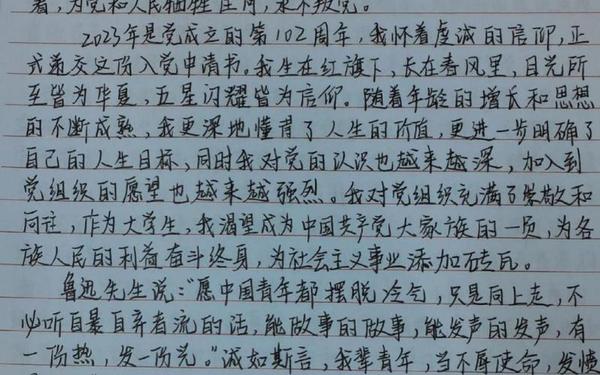 着，为党和人民牺牲任何，永不叛党。
2023年是党成立的第102周年，我怀着虔诚的信仰，正
式递交这份入党申请书。我生在红旗下，长在春风里，目光所
至皆为华夏，五星闪耀皆为信仰。随着年龄的增长和思想
的不断成熟，我更深地懂得了人生的价值，更进一步明确了
自己的人生目标，同时我对党的认识也越来越深，加入到
党组织的愿望也越来越强烈。我对党组织充满了崇敬和
向往，作为大学生，我渴望成为中国共产党大家族的一员，为各
族人民的利益奋斗终身，为社会主义事业添加砖瓦。
鲁迅先生说："愿中国青年都摆脱冷气，只是向上走，不
必听自暴自弃者流的话，能做事的做事，能发声的发声，有
一份热，发一份光。"诚如斯言，我辈青年，当不辱使命，发愤